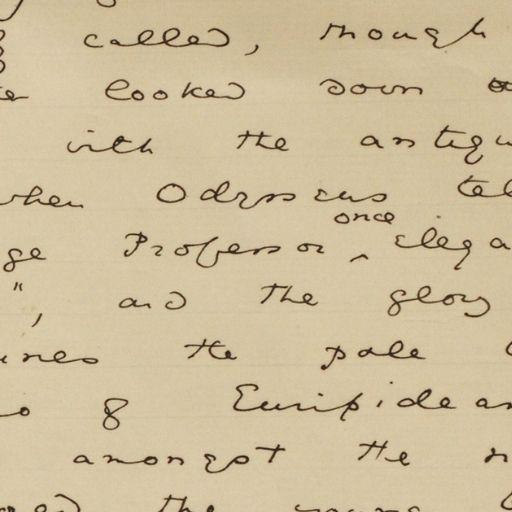 called, though
looked down
with the antiqu
when Odysseus tel
once
ge Professor ‸ elega
", and the glory
the pale
& Euripidean
amongst the
the